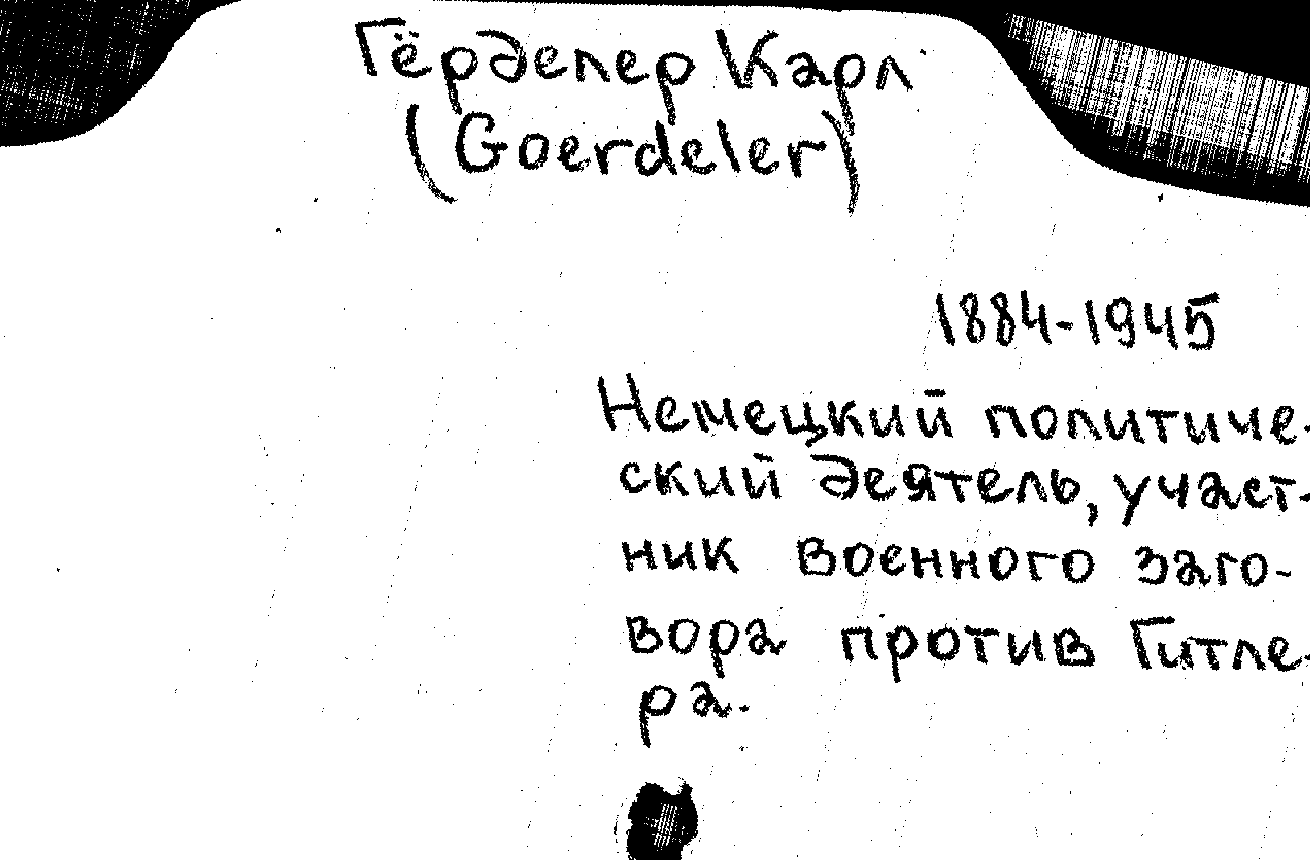 Гёрделер Карл
(Goerdeler)
1884-1945
Немецкий политиче-
ский деятель, участ-
ник военного заго-
вора против Гитле-
ра.